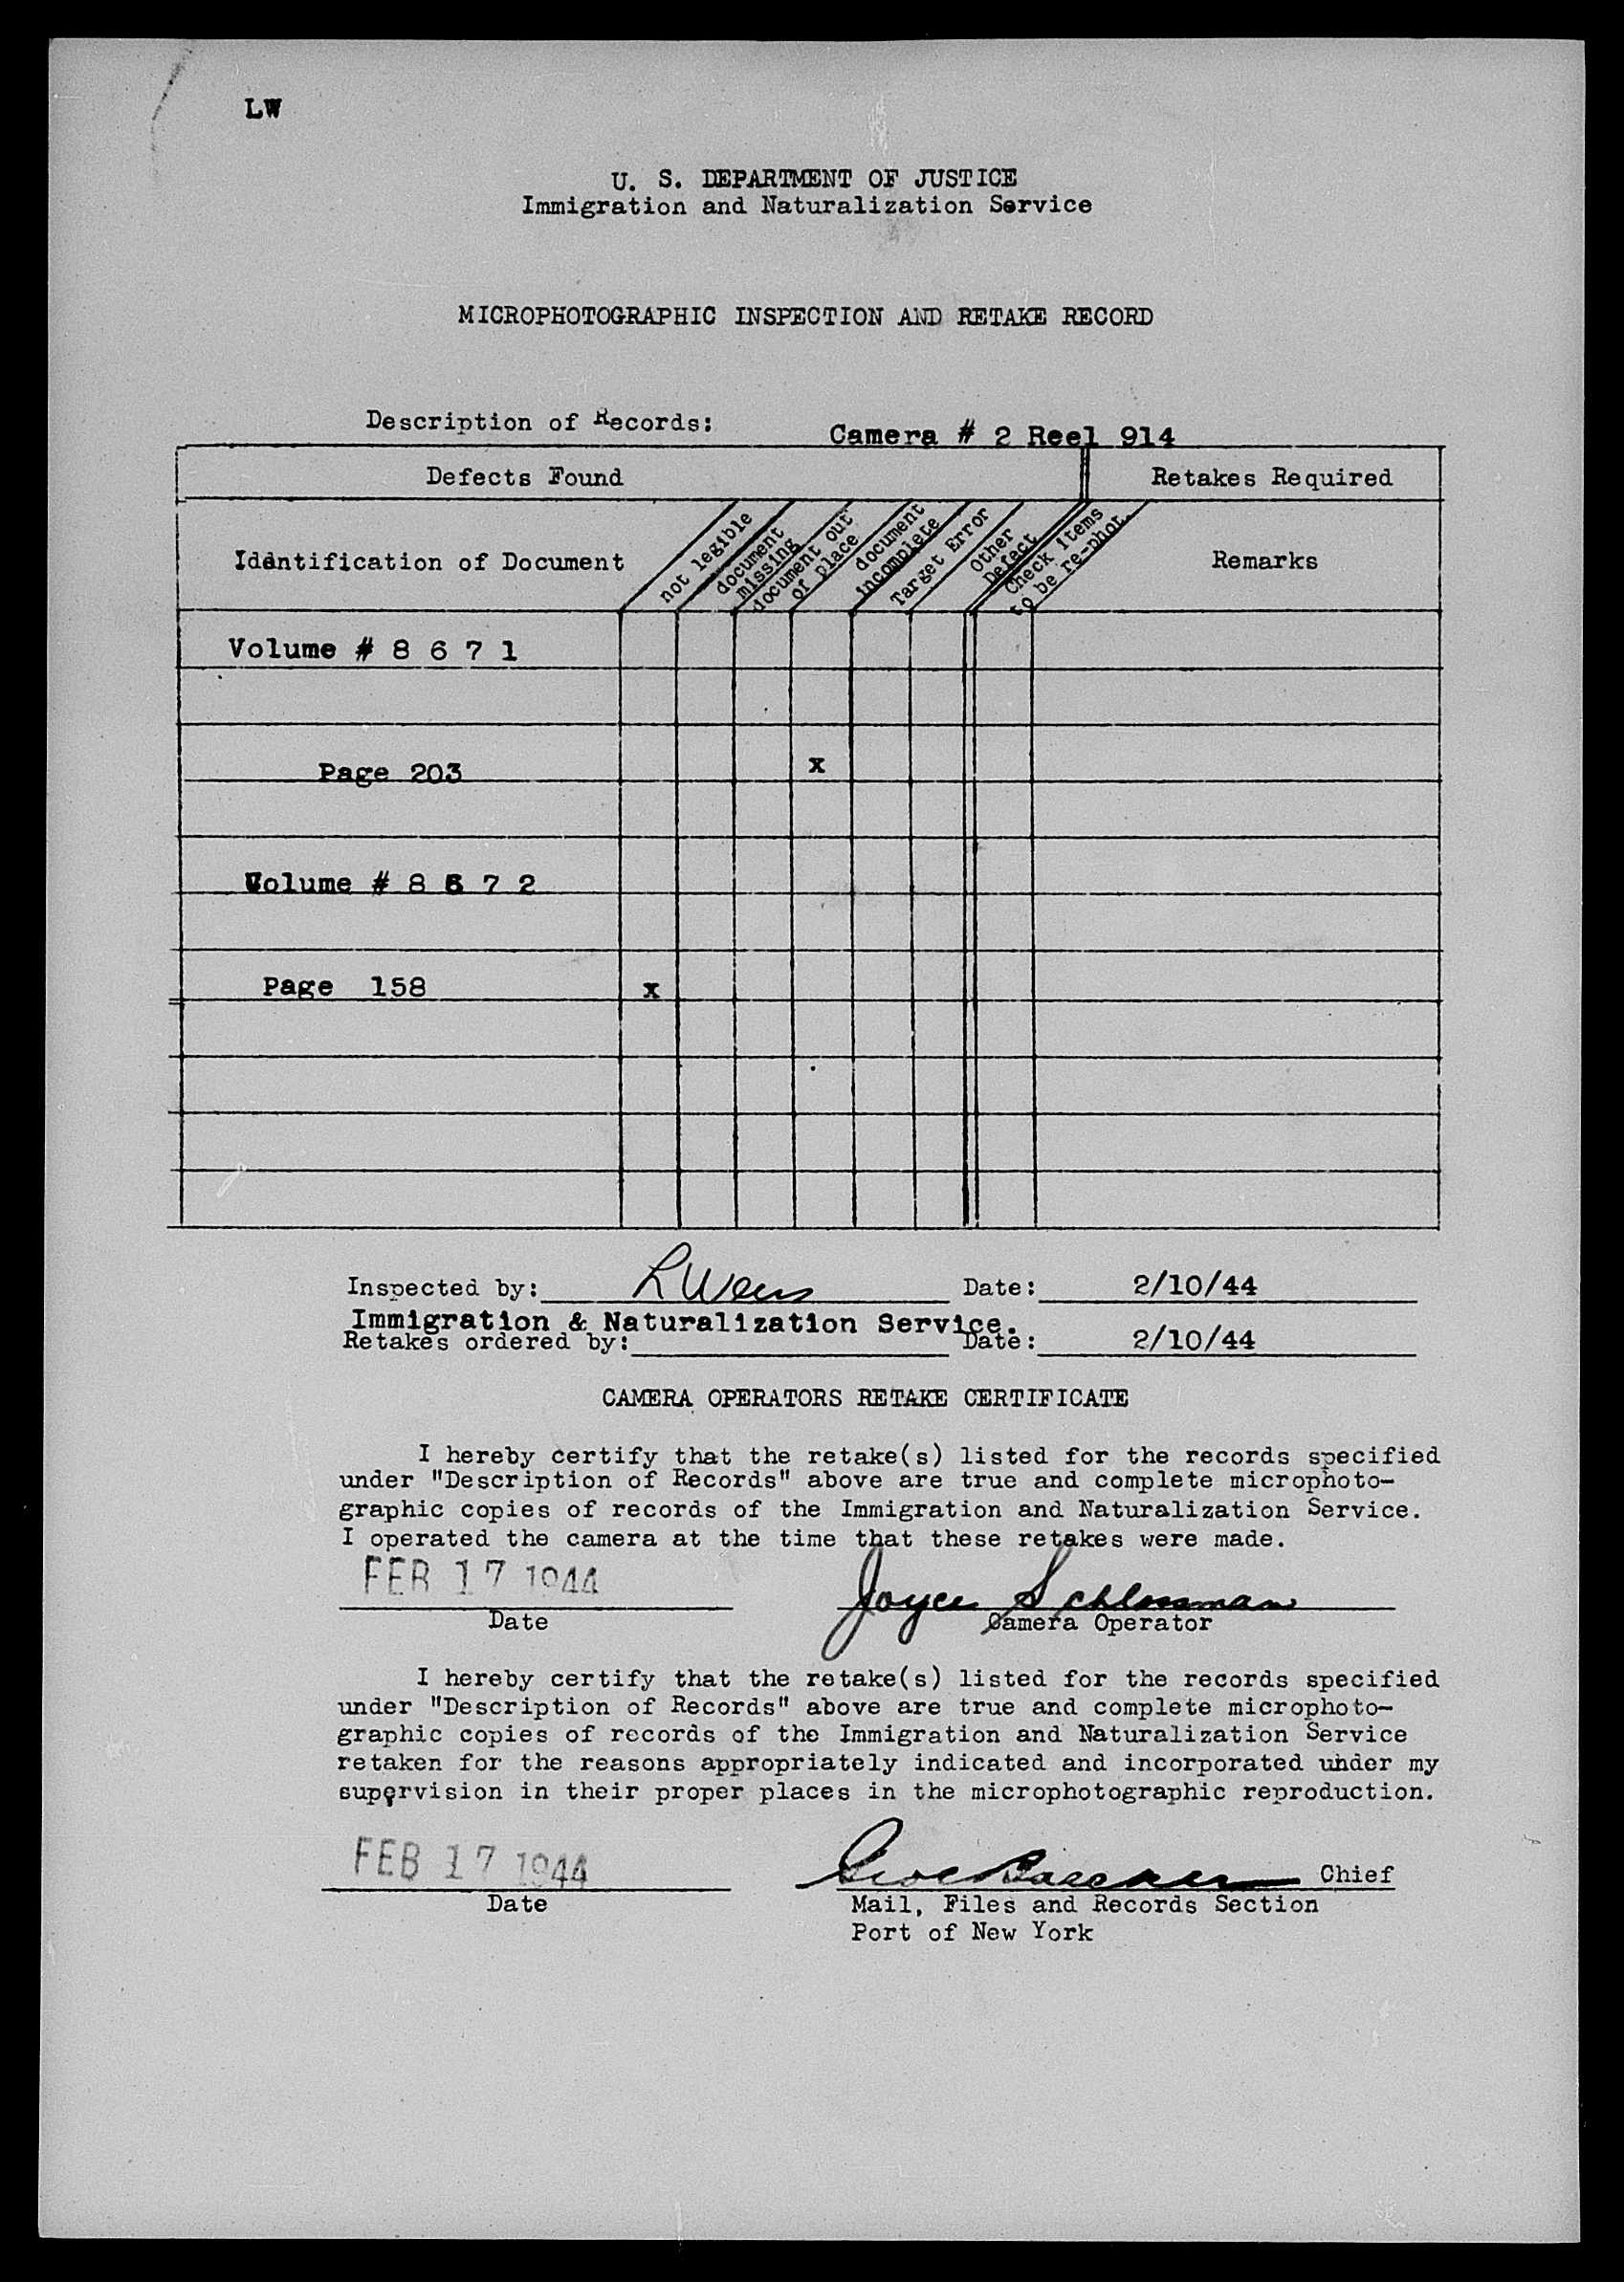 LW
U. S. DEPARTMENT OF JUSTICE
Immigration and Naturalization Service
MICROPHOTOGRAPHIC INSPECTION AND RETAKE RECORD
Description of Records: Camera # 2 Reel 914
Defects Found Retakes Required
Identification of Document
not legible
document
missing
document out
of place
document
incomplete
Target Error
Other
Defect
Check items
to be re-phot.
Remarks
Volume # 8 6 7 1
Page 203 x
Volume # 8 6 7 2
Page 158 x
Inspected by: L Weis Date: 2/10/44
Immigration & Naturalization Service.
Retakes ordered by: Date: 2/10/44
CAMERA OPERATORS RETAKE CERTIFICATE
I hereby certify that the retake(s) listed for the records specified
under "Description of Records" above are true and complete microphoto-
graphic copies of records of the Immigration and Naturalization Service.
I operated the camera at the time that these retakes were made.
FEB 17 1944 Joyce Schlossman
Date Camera Operator
I hereby certify that the retake(s) listed for the records specified
under "Description of Records" above are true and complete microphoto-
graphic copies of records of the Immigration and Naturalization Service
retaken for the reasons appropriately indicated and incorporated under my
supervision in their proper places in the microphotographic reproduction.
FEB 17 1944 Chief
Date Mail, Files and Records Section
Port of New York